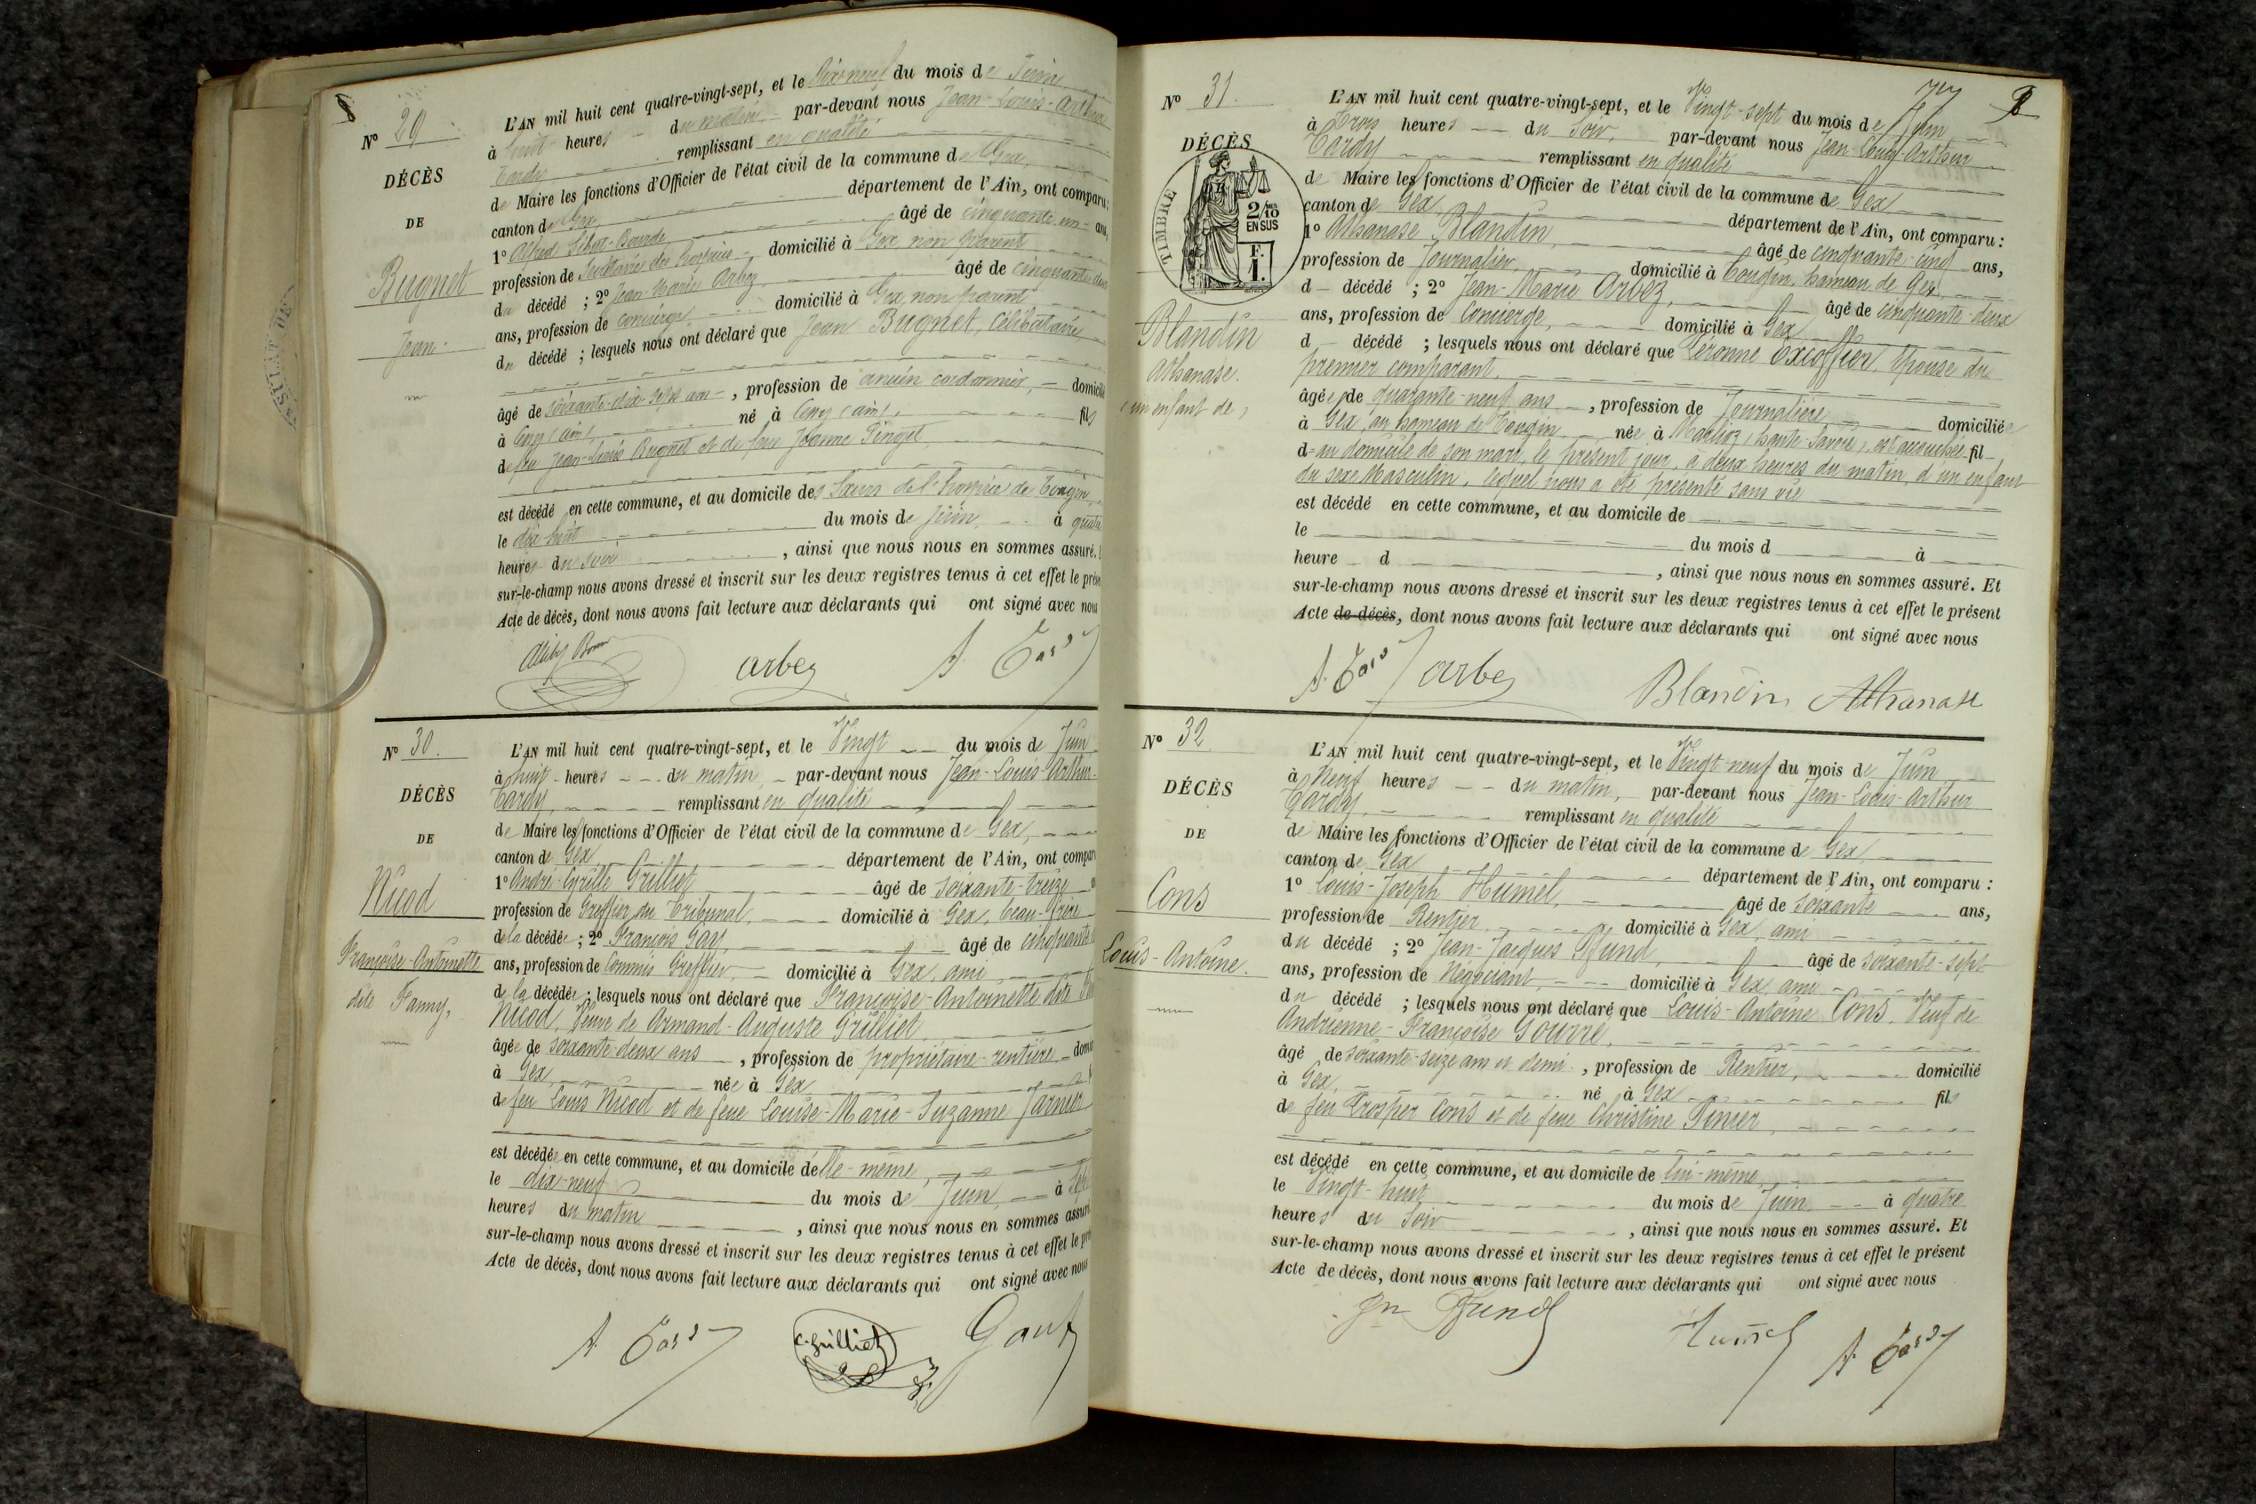 Nº 29
DÉCÈS
DE
Bugnet
Jean
L'AN mil huit cent quatre-vingt-sept, et le Dix-neuf du mois de Juin
à huit heures du matin par-devant nous Jean-Louis-Arthur
Tardy remplissant en qualité
de Maire les fonctions d'Officier de l'état civil de la commune de Gex,
canton de Gex département de l'Ain, ont comparu:
1º âgé de cinquante-un ans,
profession de Secrétaire des hospices domicilié à Gex non parent
du décédé ; 2º Jean-Marie Arbez âgé de cinquante-deux
ans, profession de concierge domicilié à Gex, non parent
du décédé ; lesquels nous ont déclaré que Jean Bugnet, Célibataire
âgé de soixante-dix-sept ans, profession de ancien cordonnier, domicilié
à (ain), né à (ain), fils
de feu Jean-Louis Bugnet et de feue Jeanne Pinget
est décédé en cette commune, et au domicile des Sœurs de l'hospice de Tougin
le dix-huit du mois de Juin à quatre
heures du soir, ainsi que nous nous en sommes assuré.
sur-le-champ nous avons dressé et inscrit sur les deux registres tenus à cet effet le prés
Acte de décès, dont nous avons fait lecture aux déclarants qui ont signé avec nous
arbez A. Tardy
Nº 30.
DÉCÈS
DE
Nicod
Françoise-Antoinette
dite Fanny,
L'AN mil huit cent quatre-vingt-sept, et le Vingt du mois de Juin
à huit heures du matin par-devant nous Jean-Louis-Arthur
Tardy, remplissant en qualité
de Maire les fonctions d'Officier de l'état civil de la commune de Gex,
canton de Gex département de l'Ain, ont compar
1º André-Cyrille Grilliet, âgé de soixante-treize
profession de Greffier du Tribunal, domicilié à Gex, beau-frère
de la décédée ; 2º François Gay, âgé de cinquante
ans, profession de Commis Greffier domicilié à Gex, ami
de la décédée ; lesquels nous ont déclaré que Françoise-Antoinette dite
Nicod, Veuve de Armand-Auguste Grilliet
âgée de soixante-deux ans, profession de propriétaire-rentière domi
à Gex, née à Gex
de feu Louis Nicod et de feue Louise-Marie-Suzanne Jarnier
est décédée en cette commune, et au domicile d'elle-même,
le dix-neuf du mois de Juin à
heures du matin, ainsi que nous nous en sommes assuré
sur-le-champ nous avons dressé et inscrit sur les deux registres tenus à cet effet le pré
Acte de décès, dont nous avons fait lecture aux déclarants qui ont signé avec nous
A. Tardy C. Grilliet
Nº 31.
DÉCÈS
TIMBRE
2/10
EN SUS
F.
1.
Blandin
Athanase.
(un enfant de)
L'AN mil huit cent quatre-vingt-sept, et le Vingt-sept du mois de Juin
à Trois heures du Soir, par-devant nous Jean-Louis-Arthur
Tardy remplissant en qualité
de Maire les fonctions d'Officier de l'état civil de la commune de Gex
canton de Gex département de l'Ain, ont comparu :
1º Athanase Blandin, âgé de cinquante-cinq ans,
profession de Journalier, domicilié à Tougin, hameau de Gex
d décédé ; 2º Jean-Marie Arbez, âgé de cinquante-deux
ans, profession de Concierge, domicilié à Gex
d décédé ; lesquels nous ont déclaré que Péronne Excoffier, épouse du
premier comparant,
âgée de quarante-neuf ans, profession de Journalière domiciliée
à Gex, au hameau de Tougin née à Marlioz (haute-Savoie), est accouchée fil
d au domicile de son mari, le présent jour, à deux heures du matin, d'un enfant
du sexe Masculin, lequel nous a été présenté sans vie
est décédé en cette commune, et au domicile de
le du mois d à
heure d , ainsi que nous nous en sommes assuré. Et
sur-le-champ nous avons dressé et inscrit sur les deux registres tenus à cet effet le présent
Acte de décès, dont nous avons fait lecture aux déclarants qui ont signé avec nous
A. Tardy arbez Blandin Athanase
Nº 32
DÉCÈS
DE
Cons
Louis-Antoine.
L'AN mil huit cent quatre-vingt-sept, et le Vingt-neuf du mois de Juin
à Neuf heures du matin, par-devant nous Jean-Louis-Arthur
Tardy, remplissant en qualité
de Maire les fonctions d'Officier de l'état civil de la commune de Gex
canton de Gex département de l'Ain, ont comparu :
1º Louis-Joseph Humel, âgé de soixante ans,
profession de Rentier domicilié à Gex, ami
du décédé ; 2º Jean-Jacques Pfund, âgé de soixante-sept
ans, profession de Négociant, domicilié à Gex, ami
du décédé ; lesquels nous ont déclaré que Louis-Antoine Cons, Veuf de
Andrienne-Françoise Gourre,
âgé de soixante-seize ans et demi, profession de Rentier, domicilié
à Gex, né à Gex fils
de feu Prosper Cons et de feue Christine Tinier,
est décédé en cette commune, et au domicile de lui-même,
le Vingt-huit du mois de Juin à quatre
heures du Soir, ainsi que nous nous en sommes assuré. Et
sur-le-champ nous avons dressé et inscrit sur les deux registres tenus à cet effet le présent
Acte de décès, dont nous avons fait lecture aux déclarants qui ont signé avec nous
Jn Pfund Humel A. Tardy